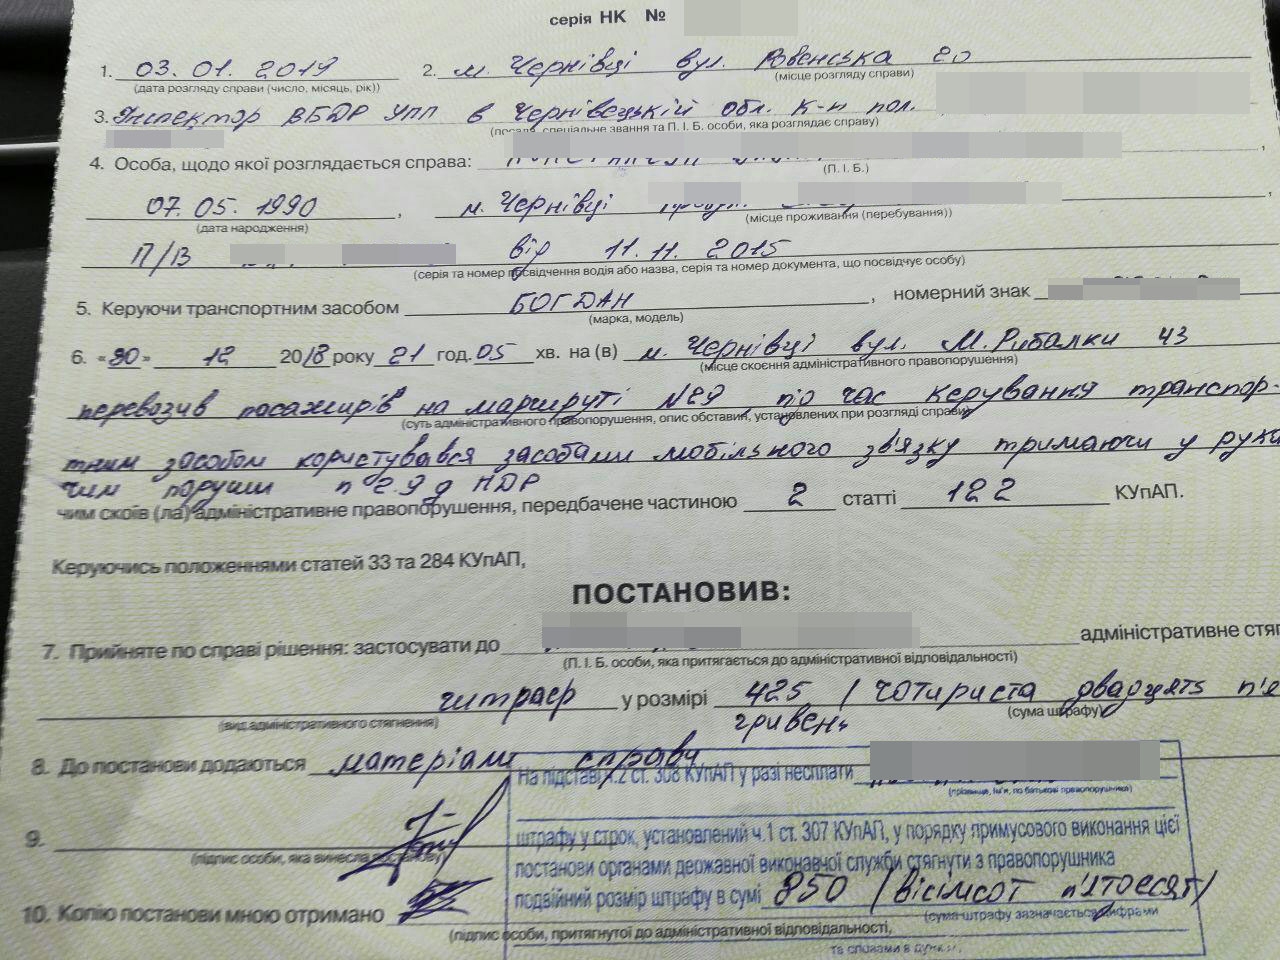 серія НК №
1. 03.01.2019 2. м. Чернівці вул. Рівенська
(дата розгляду справи (число, місяць, рік)) (місце розгляду справи)
3. Інспектор ВБДР УПП в Чернівецькій обл. к-н пол.
(посада, спеціальне звання та П. І. Б. особи, яка розглядає справу)
4. Особа, щодо якої розглядається справа:
(П. І. Б.)
07.05.1990, м. Чернівці
(дата народження) (місце проживання (перебування))
П/В від 11.11.2015
(серія та номер посвідчення водія або назва, серія та номер документа, що посвідчує особу)
5. Керуючи транспортним засобом БОГДАН, номерний знак
(марка, модель)
6. «30» 12 2018 року 21 год. 05 хв. на (в) м. Чернівці вул. М.Рибалки 43
(місце скоєння адміністративного правопорушення)
перевозив пасажирів на маршруті №29, під час керування транспор-
(суть адміністративного правопорушення, опис обставин, установлених при розгляді справи)
тним засобом користувався засобами мобільного зв'язку тримаючи у руках
чим поруши п 2.9 д ПДР
чим скоїв (ла) адміністративне правопорушення, передбачене частиною 2 статті 122 КУпАП.
Керуючись положеннями статей 33 та 284 КУпАП,
ПОСТАНОВИВ:
7. Прийняте по справі рішення: застосувати до адміністративне стяг
(П. І. Б. особи, яка притягається до адміністративної відповідальності)
штраф у розмірі 425 / чотириста двадцять п'я
(вид адміністративного стягнення) (сума штрафу)
гривень
8. До постанови додаються матеріали справи
На підставі ч.2 ст. 308 КУпАП у разі несплати
(прізвище, ім'я, по батькові правопорушника)
штрафу у строк, установлений ч.1 ст. 307 КУпАП, у порядку примусового виконання цієї
9.
(підпис особи, яка винесла постанову)
постанови органами державної виконавчої служби стягнути з правопорушника
подвійний розмір штрафу в сумі 850 (вісімсот п'ятдесят)
(сума штрафу зазначається цифрами
10. Копію постанови мною отримано
(підпис особи, притягнутої до адміністративної відповідальності,
та словами в дужках.